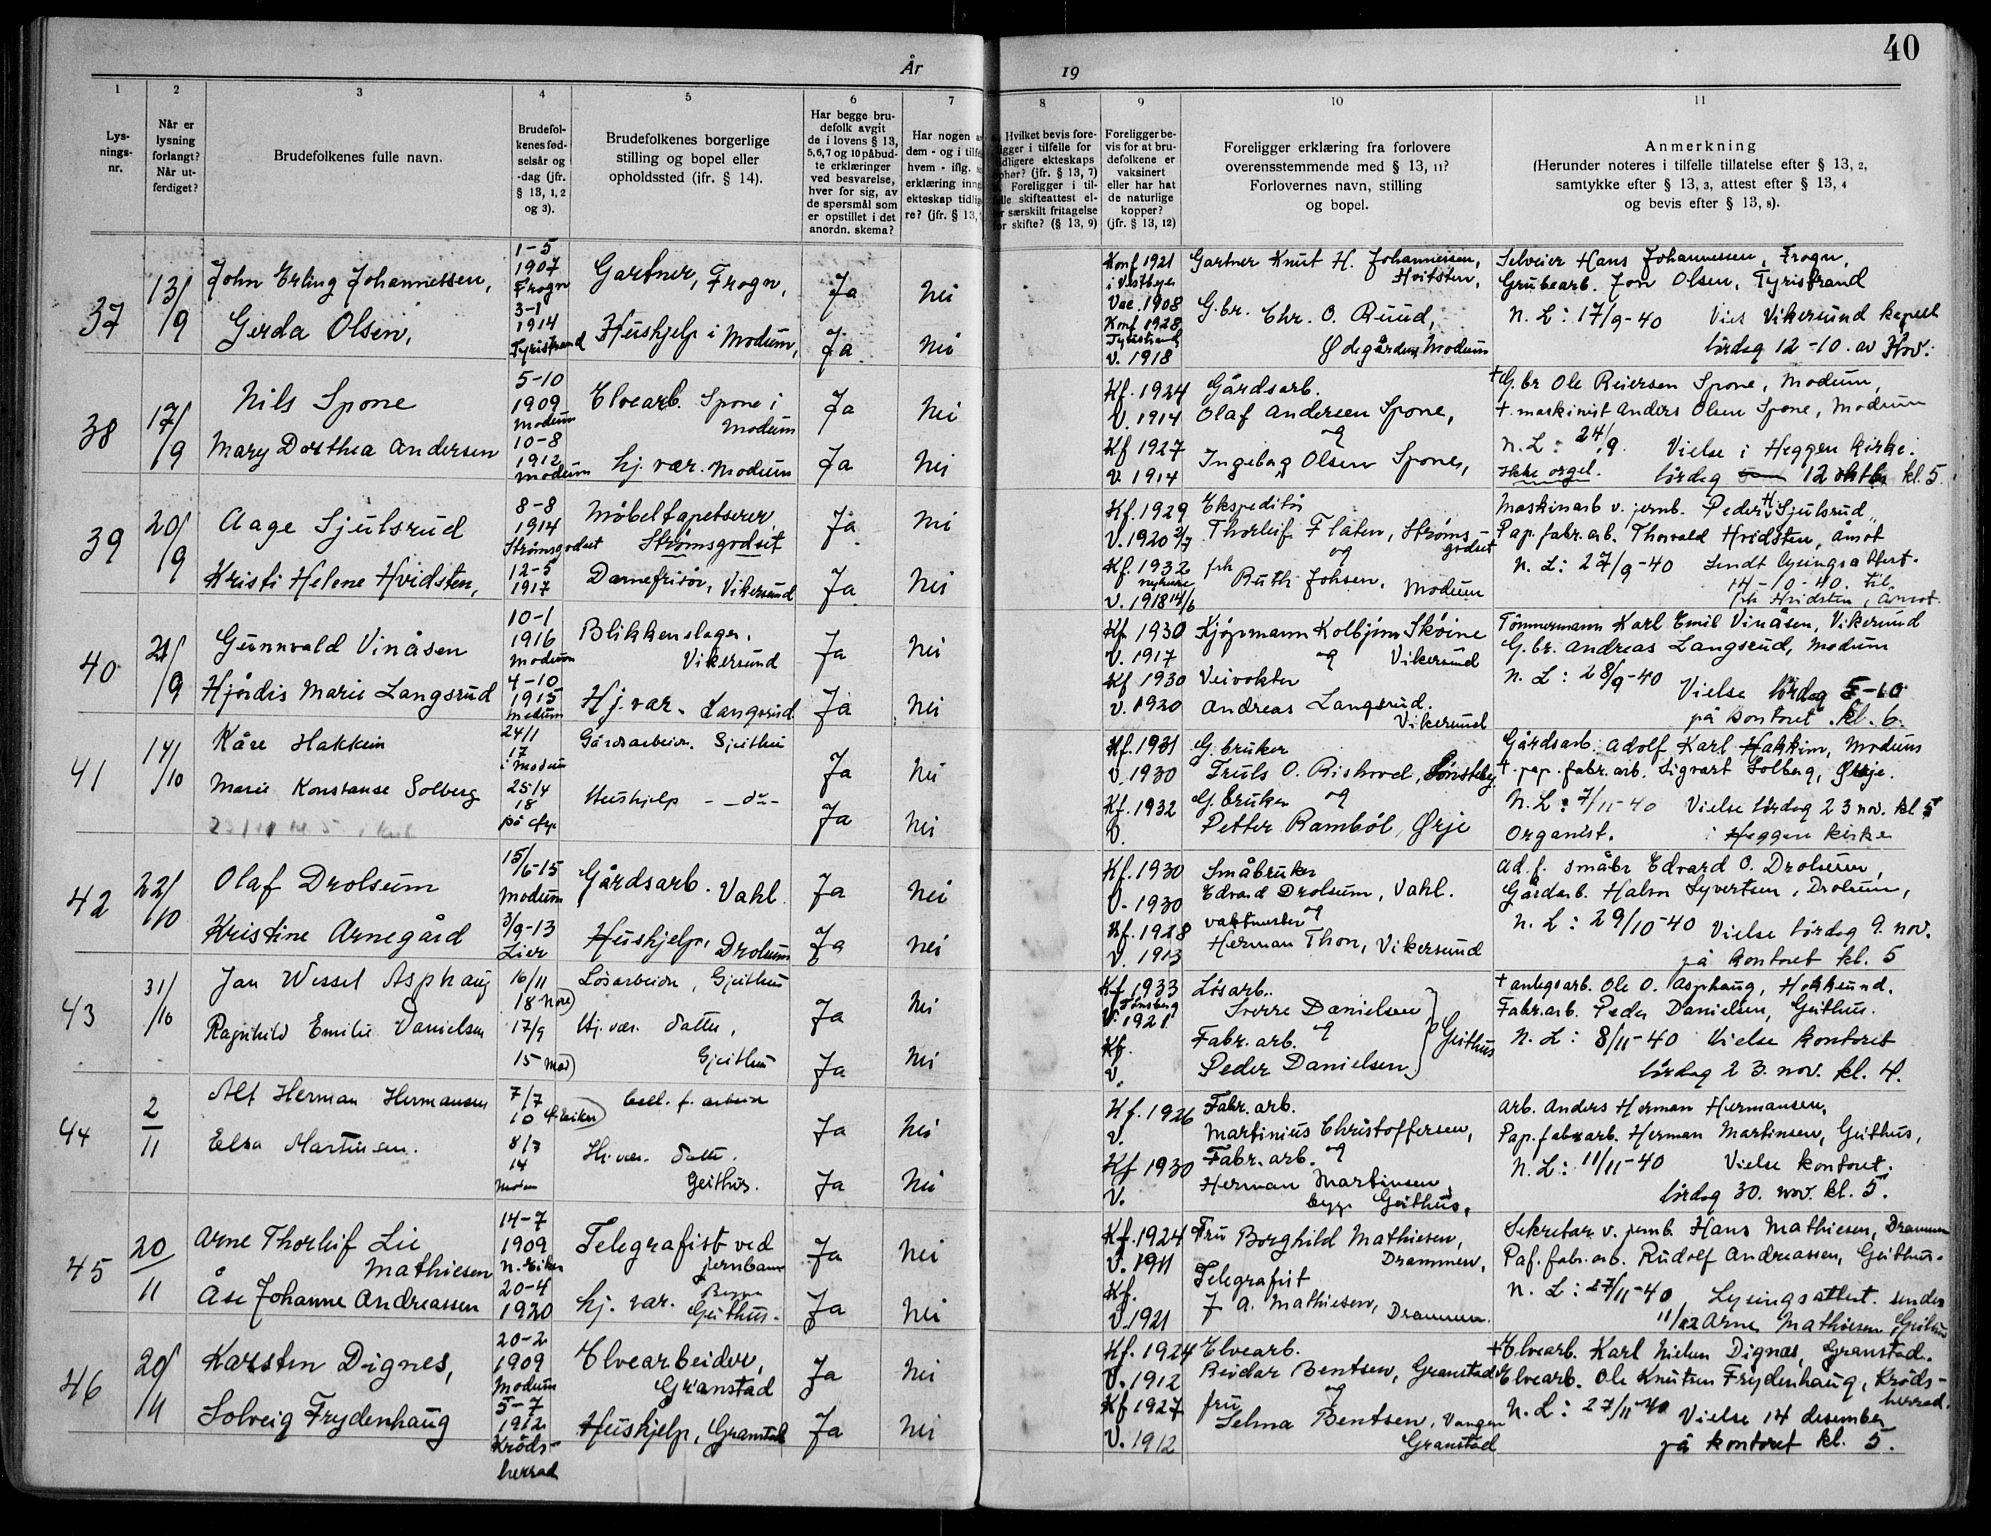 40
År
19
1
2
3
4
5
6
7
8
9
10
11
Lys-
nings-
nr.
Når er
lysning
forlangt?
Når ut-
ferdiget?
Brudefolkenes fulle navn.
Brudefol-
kenes fød-
selsår og
-dag (jfr.
§ 13, 1, 2
og 3).
Brudefolkenes borgerlige
stilling og bopel eller
opholdssted (ifr. § 14).
Har begge bru-
defolk avgit
de i lovens § 13,
5,6,7 og 10 påbud-
te erklæringer
ved besvarelse,
hver for sig, av
de spørsmål som
er opstillet i det
anordn. skema?
Har nogen a
dem - og i tilfe
hvem - iflg.
erklæring inng
ekteskap tidlig
re? (jfr. § 13,
Hvilket bevis fore-
igger i tilfelle for
idligere ekteskaps
opher? (jfr. § 13, 7)
Foreligger i til-
elle skifteattest el-
r særskilt fritagelse
or skifte? (§ 13, 9)
Foreligger be-
vis for at bru-
defolkene er
vaksinert
eller har hat
de naturlige
kopper?
(jfr. § 13, 12)
Foreligger erklæring fra forlovere
overensstemmende med § 13, 11?
Forlovernes navn, stilling
og bopel.
Anmerkning
(Herunder noteres i tilfelle tillatelse efter § 13, 2,
samtykke efter § 13, 3, attest efter § 13, 4
og bevis efter § 13, 8).
37
13/
9
John Erling Johannessen,
Gerda Olsen,
1-5
1907
Frogn
3-1
1914
Tyristrand
Gartner, Frogn,
Hushjelp i Modum,
Ja
Ja
Nei
Nei
Konf 1921
i Vestbyen
Vac. 1908
Konf 1928
Tyristrand
V. 1918
Gartner Knut H. Johannessen,
Hvitsten,
G.br. Chr. O. Ruud,
Ødegården, Modum
Selveier Hans Johannessen, Frogn,
Grubearb. Jon Olsen, Tyristrand
N. L: 17/9-40 Viet Vikersund kapell
lördag 12-10. av Hov.
38
17/
9
Nils Spone
Mary Dorthea Andersen
5-10
1909
Modum
10-8
1912
Modum
Elvearb. Spone i
Modum
hj. vær. Modum
Ja
Ja
Nei
Nei
Kf. 1924
V. 1914
Kf 1927
V. 1914
Gårdsarb.
Olaf Andersen Spone,
og
Ingeborg Olsen Spone,
+G.br Ole Reiersen Spone, Modum,
+ maskinist Anders Olsen Spone, Modum
N. L: 24/9. Vielse i Heggen kirke.
ikke orgel. lördag 12 oktb kl. 5.
39
20/
9
Aage Sjulsrud
Kristi Helene Hvidsten,
8-8
1914
Strømsgodset
12-5
1917
Møbeltapetserer
Strømsgodset
Damefrisør, Vikersund
Ja
Ja
Nei
Nei
Kf. 1929
V. 1920 2/7
Kf. 1932
V. 1918 14/6
Ekspeditör
Thorleif Flaten, Strøms-
godset
og
frk Ruth Johsen, Modum
Maskinarb v. jernb. Peder H. Sjulsrud,
Pap. fabr. arb. Thorvald Hvidsten, Åmot
N. L: 27/9-40 Sendt lysingsattest.
14-10-40. til
frk Hvidsten, Åmot.
40
21/
9
Gunnvald Vinåsen
Hjördis Marie Langsrud
10-1
1916
Modum
4-10
1915
Modum
Blikkenslager,
Vikersund
Hj. vær. Langsrud
Ja
Ja
Nei
Nei
Kf 1930
V. 1917
Kf 1930
V. 1930
Kjøpmann Kolbjörn Skøine
og Vikersund
Veivokter
Andreas Langsrud.
Vikersund
Tömmermann Karl Emil Vinåsen, Vikersund
G. br. Andreas Langsrud, Modum
N. L: 28/9-40
Vielse lördag 5-10
på kontoret kl. 6.
41
14/
10
Kåre Hakkim
Marie Konstanse Solberg
24/1
17
i Modum
25/4
18
Gårdsarbeider. Gjeithus
Hushjelp - do -
Ja
Ja
Nei
Nei
Kf. 1931
V. 1930
Kf. 1932
V.
G. bruker
Truls O. Rishovd, Sønsteby
G. bruker og
Petter Rambøl, Ørje
Gårdsarb. Adolf Karl Hakkim, Modum
+ pap. fabr. arb. Sigvart Solberg, Ørje.
N. L: 7/11-40 Vielse lördag 23 nov. kl 5
Organist. i Heggen kirke
42
22/
10
Olaf Drolsum
Kristine Arnegård
15/6-15
Modum
3/9-13
Lier
Gårdsarb. Vahl
Hushjelp, Drolsum
Ja
Ja
Nei
nei
Kf. 1930
V. 1930
Kf. 1928
V. 1913
Småbruker
Edvard Drolsum, Vahl.
vaktmester og
Herman Thon, Vikersund
Ad. f. småbr Edvard O. Drolsum,
Gårdarb. Halvor Syvertsen, Drolsum,
N. L: 29/10-40 Vielse lördag 9. nov.
på kontoret kl. 5
43
31/
10
Jan Wessel Asphaug
Ragnhild Emilie Danielsen
16/11
18 Nore)
17/9
15 Mod)
Løsarbeider, Gjeithus
Hj. vær. datter,
Gjeithus
Ja
Ja
Nei
Nei
Kf 1933
Tønsberg
V. 1921
Kf.
V.
Løsarb.
Sverre Danielsen
og
Fabr. arb.
Peder Danielsen
Geithus
+ anlegsarb. Ole O. Asphaug, Hokksund.
Fabr. arb. Peder Danielsen, Geithus.
N. L: 8/11-40 Vielse kontoret
lördag 23. nov. kl. 4.
44
2
11
Alf Herman Hermansen
Elsa Martinsen.
7/7
10 Ø. Eiker)
8/7
14
Modum
cell. f. arbeider
Hj. vær. datter.
Geithus.
Ja
Ja
Nei
Nei
Kf. 1926
V.
Kf 1930
V.
Fabr. arb.
Martinius Christoffersen,
Fabr. arb. og
Herman Martinsen,
begge Geithus,
Arb. Anders Herman Hermansen,
Pap. fabr. arb. Herman Martinsen, Geithus,
N. L: 11/11-40 Vielse kontoret.
lördag 30. nov. kl. 5.
45
20
11
Arne Thorleif Lie
Mathiesen
Åse Johanne Andreassen
14-7
1909
N. Eiker
20-4
1920
Telegrafist ved
jernbane
Begge
hj. vær. Geithus.
Ja
Ja
Nei
Nei
Kf. 1924
V. 1911
Kf.
V. 1921
Fru Borghild Mathiesen,
Drammen,
Telegrafist
J. A. Mathiesen, Drammen.
Sekretær v. jernb. Hans Mathiesen, Drammen
Pap. fabr. arb. Rudolf Andreassen, Geithus.
N. L: 27/11-40 Lysingsattest. sendes
11/12 Arne Mathiesen, Geithus
46
20/
11
Karsten Dignes,
Solveig Frydenhaug
20-2
1909
Modum
5-7
1912
Kröds-
herrad
Elvearbeider,
Granstad
Hushjelp, Granstad
Ja
Ja
Nei
Nei
Kf. 1924
V. 1912
Kf 1927
V. 1912
Elvearb.
Reidar Bentsen, Granstad
og
fru
Selma Bentsen, Vangen
Granstad
+Elvearb. Karl Nielsen Dignes, Granstad.
Elvearb. Ole Knutsen Frydenhaug, Kröds-
herrad.
N. L: 27/11-40 Vielse 14 desember
på kontoret kl. 5.